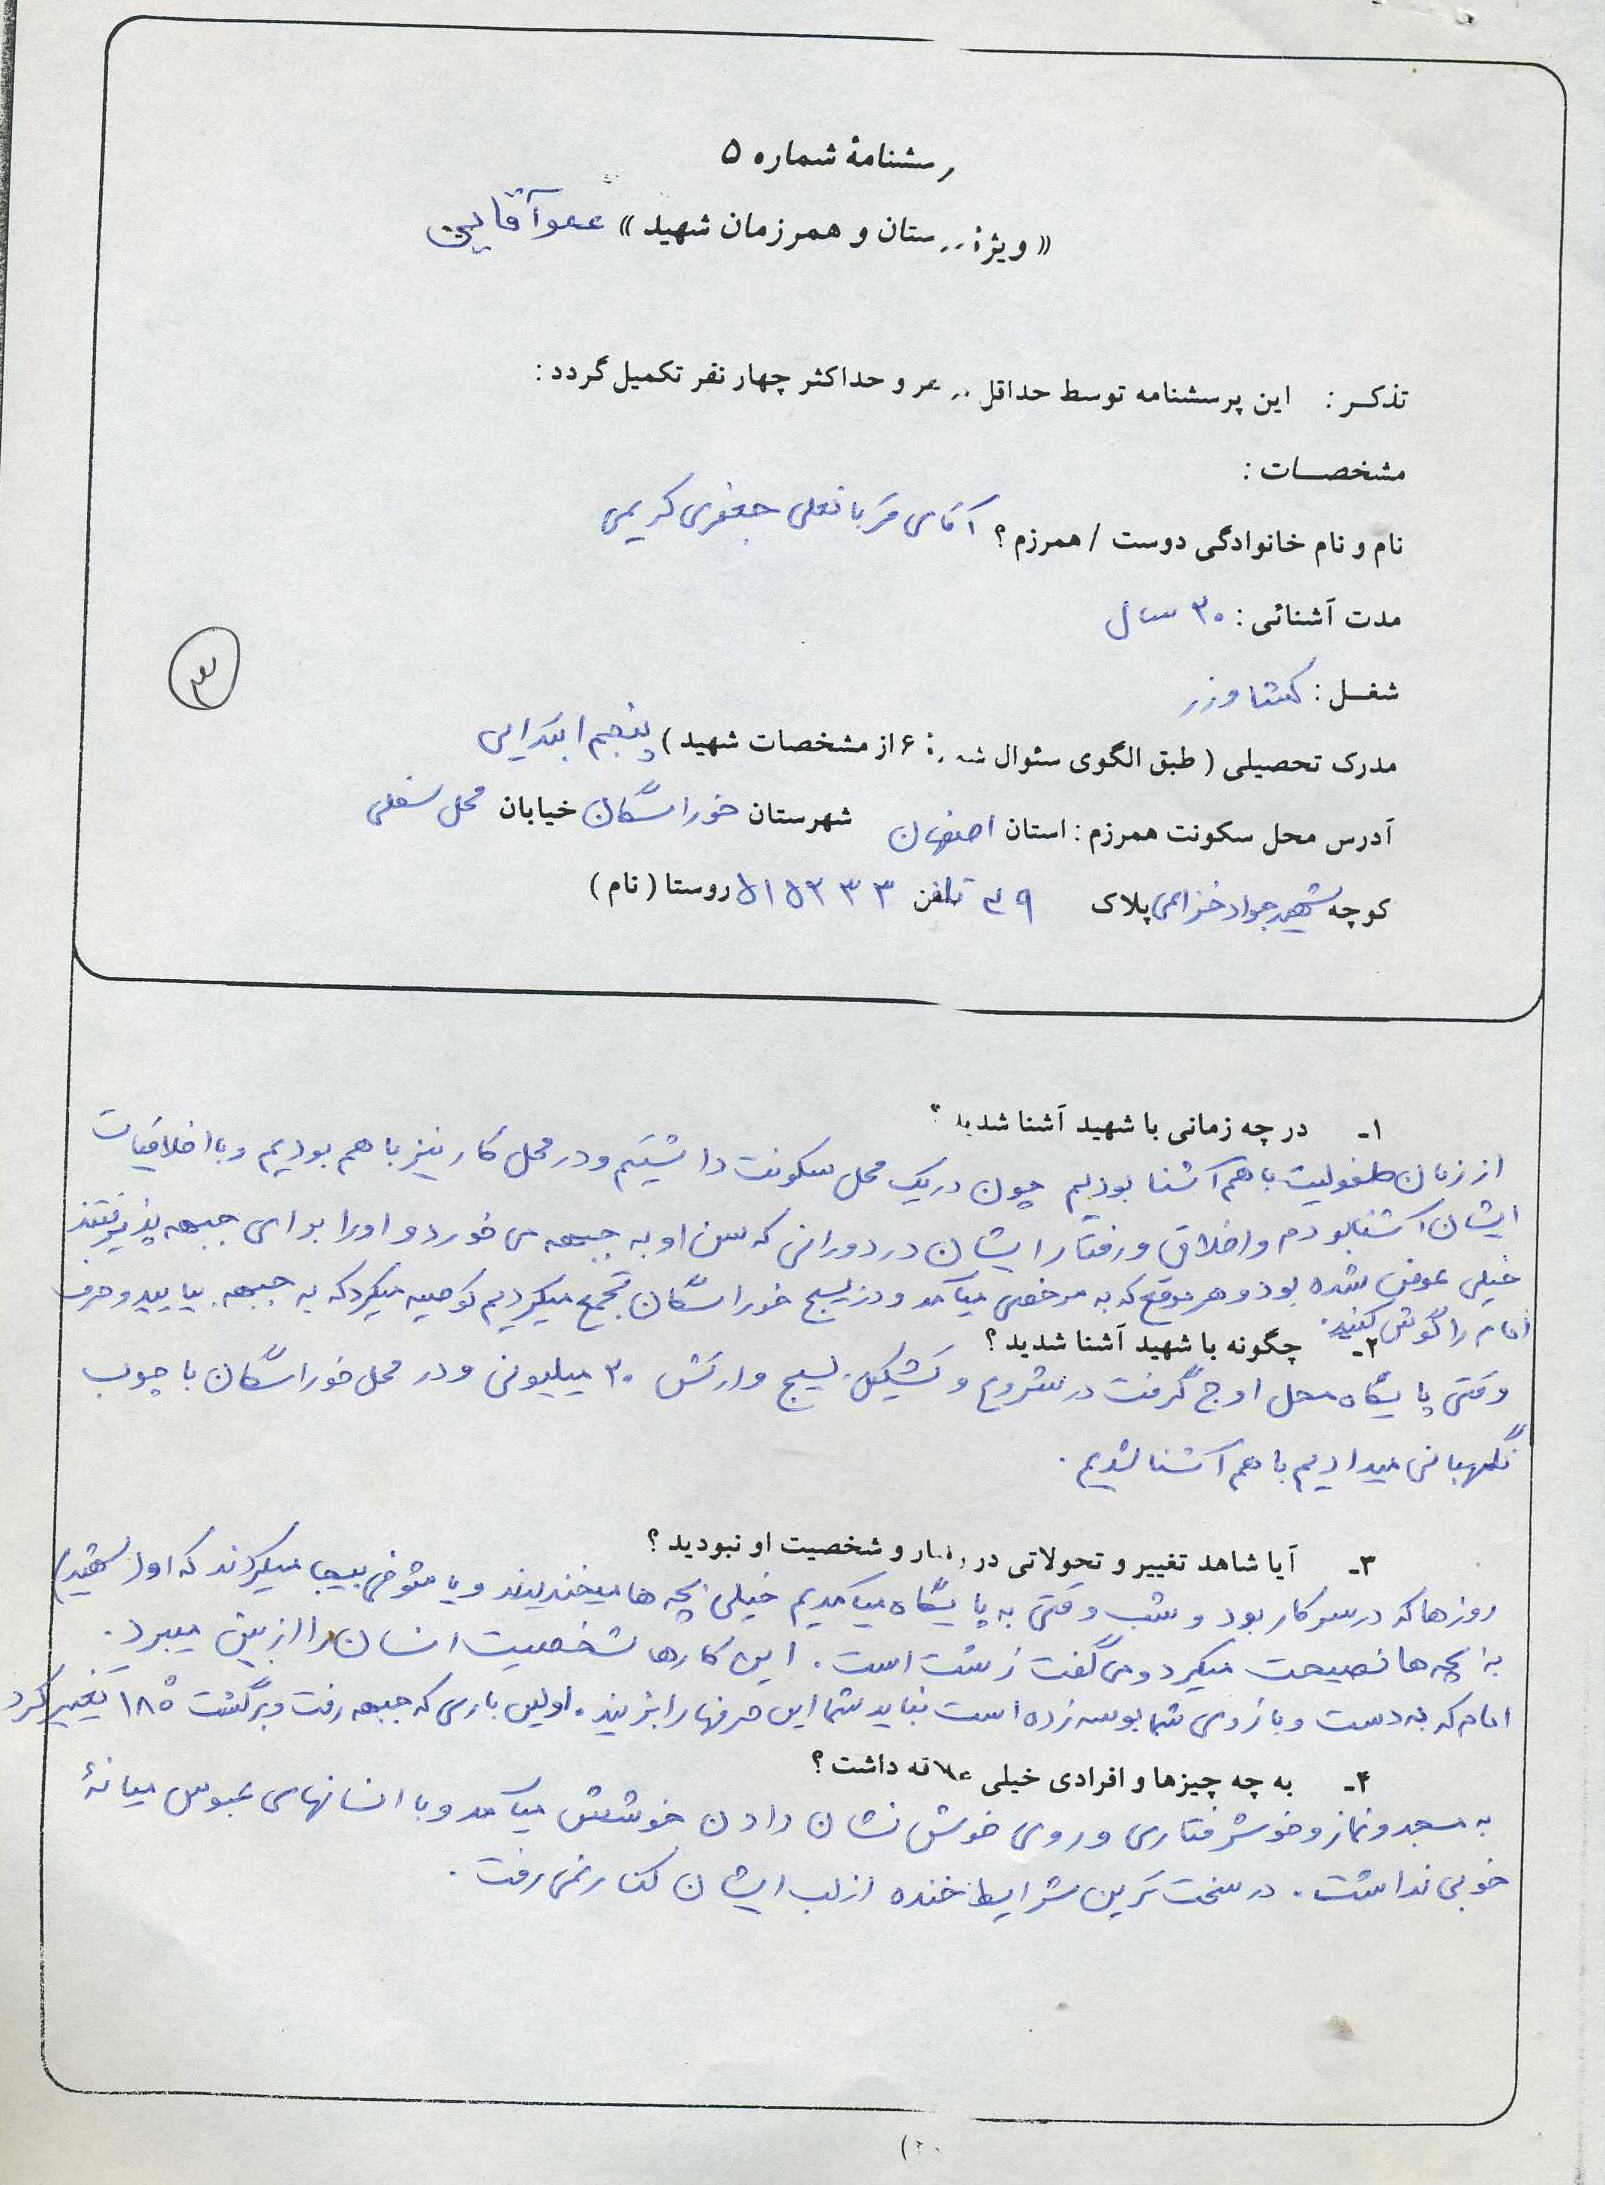 رسشنامهٔ شماره ۵
« ویژهٔ ستان و همرزمان شهید » عموآقایی
تذکر : این پرسشنامه توسط حداقل و حداکثر چهار نفر تکمیل گردد :
مشخصات :
نام و نام خانوادگی دوست / همرزم ؟ آقای قربانعلی جعفری کریمی
مدت آشنائی : ۳۰ سال
شغل : کشاورز
۳
مدرک تحصیلی ( طبق الگوی سئوال ۶ از مشخصات شهید ) پنجم ابتدایی
آدرس محل سکونت همرزم : استان اصفهان شهرستان خوراسگان خیابان محل سفلی
کوچه شهید جواد خزایی پلاک ۴۹ تلفن ۵۱۵۲۳۳۳ روستا ( نام )
۱- در چه زمانی با شهید آشنا شدید ؟
از زمان طفولیت با هم آشنا بودیم چون در یک محل سکونت داشتیم و در محل کار نیز با هم بودیم و با اخلاقیات
ایشان آشنا بودم و اخلاق و رفتار ایشان در دورانی که سن او به جبهه می خورد و او را برای جبهه پذیرفتند
خیلی عوض شده بود و هر موقع که به مرخصی میآمد و در بسیج خوراسگان تجمع میکردیم توصیه میکرد که به جبهه بیایید و حرف
امام را گوش کنید .
۲- چگونه با شهید آشنا شدید ؟
وقتی پایگاه محل اوج گرفت در شروع و تشکیل بسیج و ارتش ۲۰ میلیونی و در محل خوراسگان با چوب
نگهبانی میدادیم با هم آشنا شدیم .
۳- آیا شاهد تغییر و تحولاتی در رفتار و شخصیت او نبودید ؟
روزها که در سر کار بود و شب وقتی به پایگاه میآمدیم خیلی بچه ها میخندیدند و یا شوخی بیجا میکردند که او ( شهید )
به بچه ها نصیحت میکرد و می گفت زشت است . این کارها شخصیت انسان را از بین میبرد .
امام که به دست و بازوی شما بوسه زده است نباید شما این حرفها را بزنید . اولین باری که جبهه رفت و برگشت ۱۸۰ْ تغییر کرد
۴- به چه چیزها و افرادی خیلی علاقه داشت ؟
به مسجد و نماز و خوشرفتاری و روی خوش نشان دادن خوشش میآمد و با انسانهای عبوس میانهٔ
خوبی نداشت . در سخت ترین شرایط خنده از لب ایشان کنار نمی رفت .